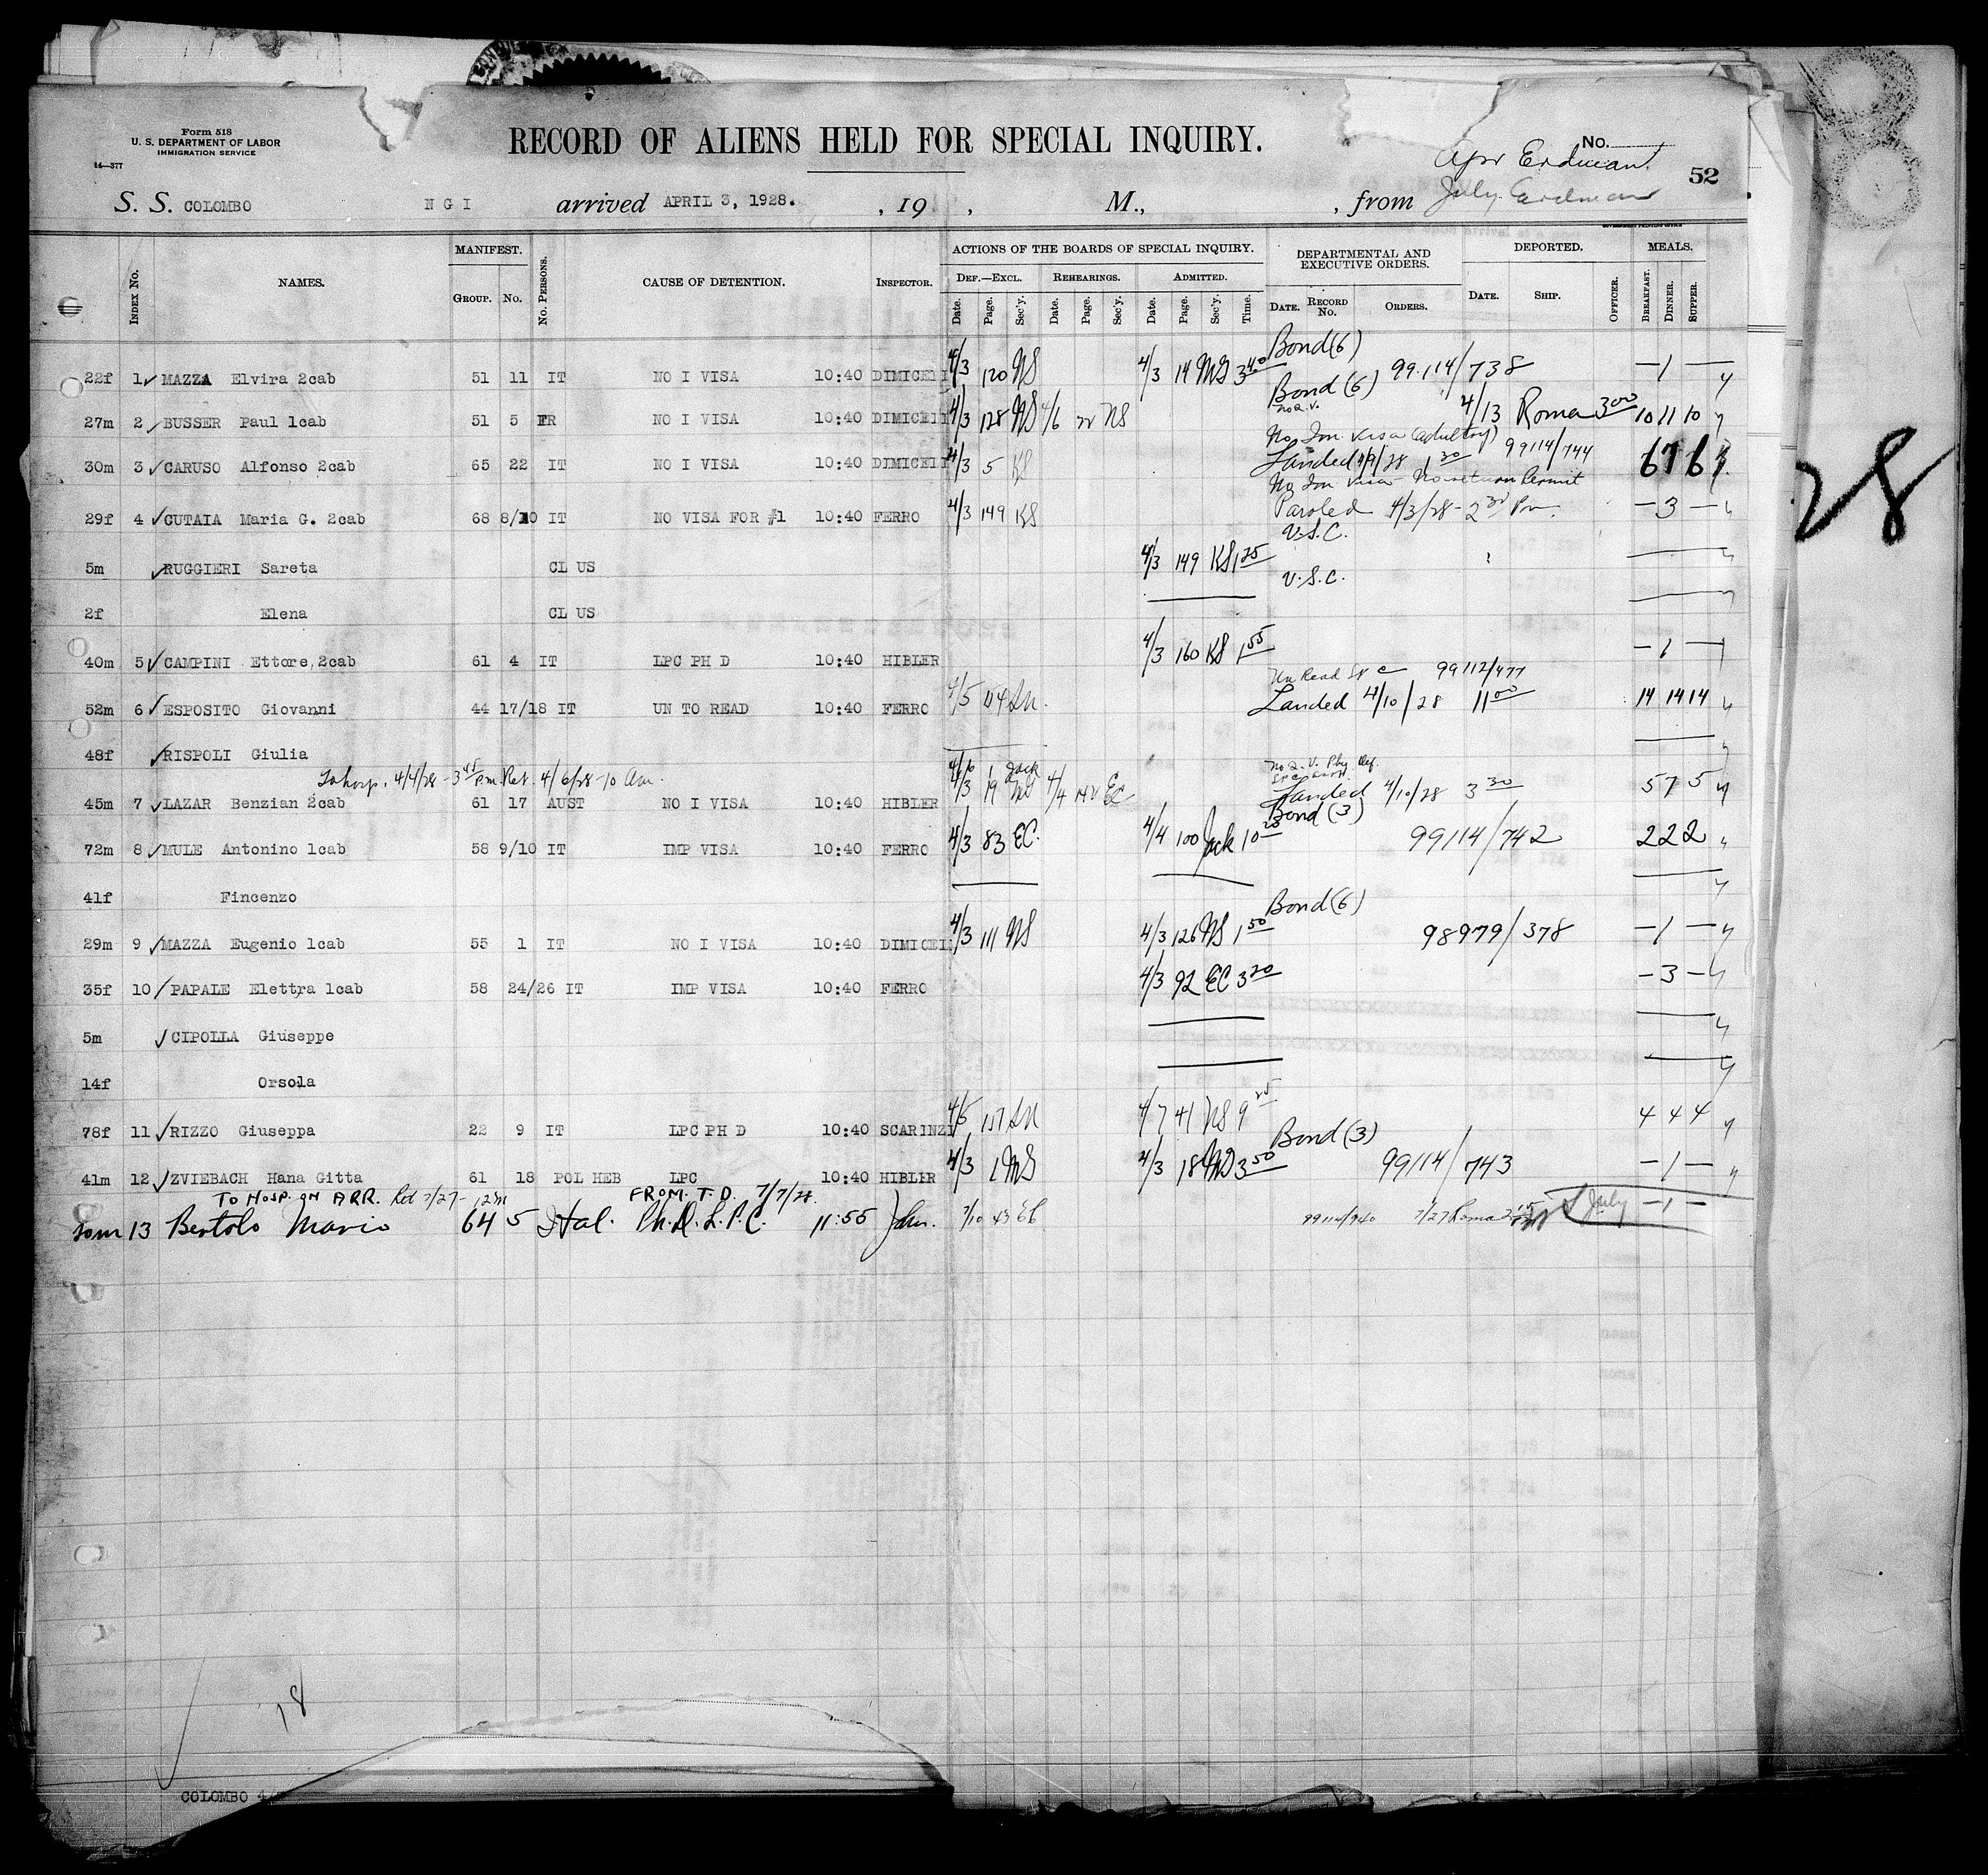 Form 518
U. S. DEPARTMENT OF LABOR
IMMIGRATION SERVICE
14—377
RECORD OF ALIENS HELD FOR SPECIAL INQUIRY.
No.
Apr Erdman
52
S. S. COLOMBO N G I arrived APRIL 3, 1928. , 19 , M., , from July Erdman
Index No. NAMES. MANIFEST. Group. No. No. Persons. CAUSE OF DETENTION. Inspector. ACTIONS OF THE BOARDS OF SPECIAL INQUIRY. Def.—Excl. Date. Page. Sec'y. Rehearings. Date. Page. Sec'y. Admitted. Date. Page. Sec'y. Time. DEPARTMENTAL AND EXECUTIVE ORDERS. Date. Record No. Orders. DEPORTED. Date. Ship. Officer. MEALS. Breakfast. Dinner. Supper.
Bond (6)
22f 1 MAZZA Elvira 2cab 51 11 IT NO I VISA 10:40 DIMICELI 4/3 120 NS 4/3 14 MS 3 40 99114/738 — 1 —
Bond (6)
27m 2 BUSSER Paul 1cab 51 5 FR NO I VISA 10:40 DIMICELI 4/3 128 NS 4/6 22 NS 4/13 Roma 3 00 10 11 10
No Im. visa (adultery)
30m 3 CARUSO Alfonso 2cab 65 22 IT NO I VISA 10:40 DIMICELI 4/3 5 KS Landed 4/9/28 1 30 99114/744 6 7 6
No Im visa — No return Permit
29f 4 CUTAIA Maria G. 2cab 68 8/10 IT NO VISA FOR #1 10:40 FERRO 4/3 149 KS Paroled 4/3/28 - 2 30 Pm. — 3 —
U.S.C.
5m RUGGIERI Sareta CL US 4/3 149 KS 1 25
U.S.C.
2f Elena CL US
40m 5 CAMPINI Ettore 2cab 61 4 IT LPC PH D 10:40 HIBLER 4/3 160 KS 1 55 — 1 —
Un Read 99112/477
52m 6 ESPOSITO Giovanni 44 17/18 IT UN TO READ 10:40 FERRO 4/5 Landed 4/10/28 11 00 14 14 14
48f RISPOLI Giulia
To hosp. 4/4/28 - 3 45 P.m. Ret. 4/6/28 - 10 Am.
4/6 1 Jack
45m 7 LAZAR Benzian 2cab 61 17 AUST NO I VISA 10:40 HIBLER 4/3 19 4/4 142 EC Landed 4/10/28 3 30 5 7 5
Bond (3)
72m 8 MULE Antonino 1cab 58 9/10 IT IMP VISA 10:40 FERRO 4/3 83 EC. 4/4 100 Jack 10 25 99114/742 2 2 2
41f Fincenzo
Bond (6)
29m 9 MAZZA Eugenio 1cab 55 1 IT NO I VISA 10:40 DIMICELI 4/3 111 NS 4/3 126 NS 1 50 98979/378 — 1 —
35f 10 PAPALE Elettra 1cab 58 24/26 IT IMP VISA 10:40 FERRO 4/3 92 EC 3 20 — 3 —
5m CIPOLLA Giuseppe
14f Orsola
78f 11 RIZZO Giuseppa 22 9 IT LPC PH D 10:40 SCARINZI 4/5 157 4/7 41 NS 9 25 4 4 4
Bond (3)
41m 12 ZVIEBACH Hana Gitta 61 18 POL HEB LPC 10:40 HIBLER 4/3 1 MS 4/3 18 MS 3 50 99114/743 — 1 —
TO HOSP. ON ARR. Ret 7/27 - FROM. T. D. 7/7/28.
13 Bertolo Mario 64 5 Ital. Ph.D. L.P.C. 11:55 7/10 43 EC 99114/940 7/27 Roma July — 1 —
28
18
COLOMBO 4/